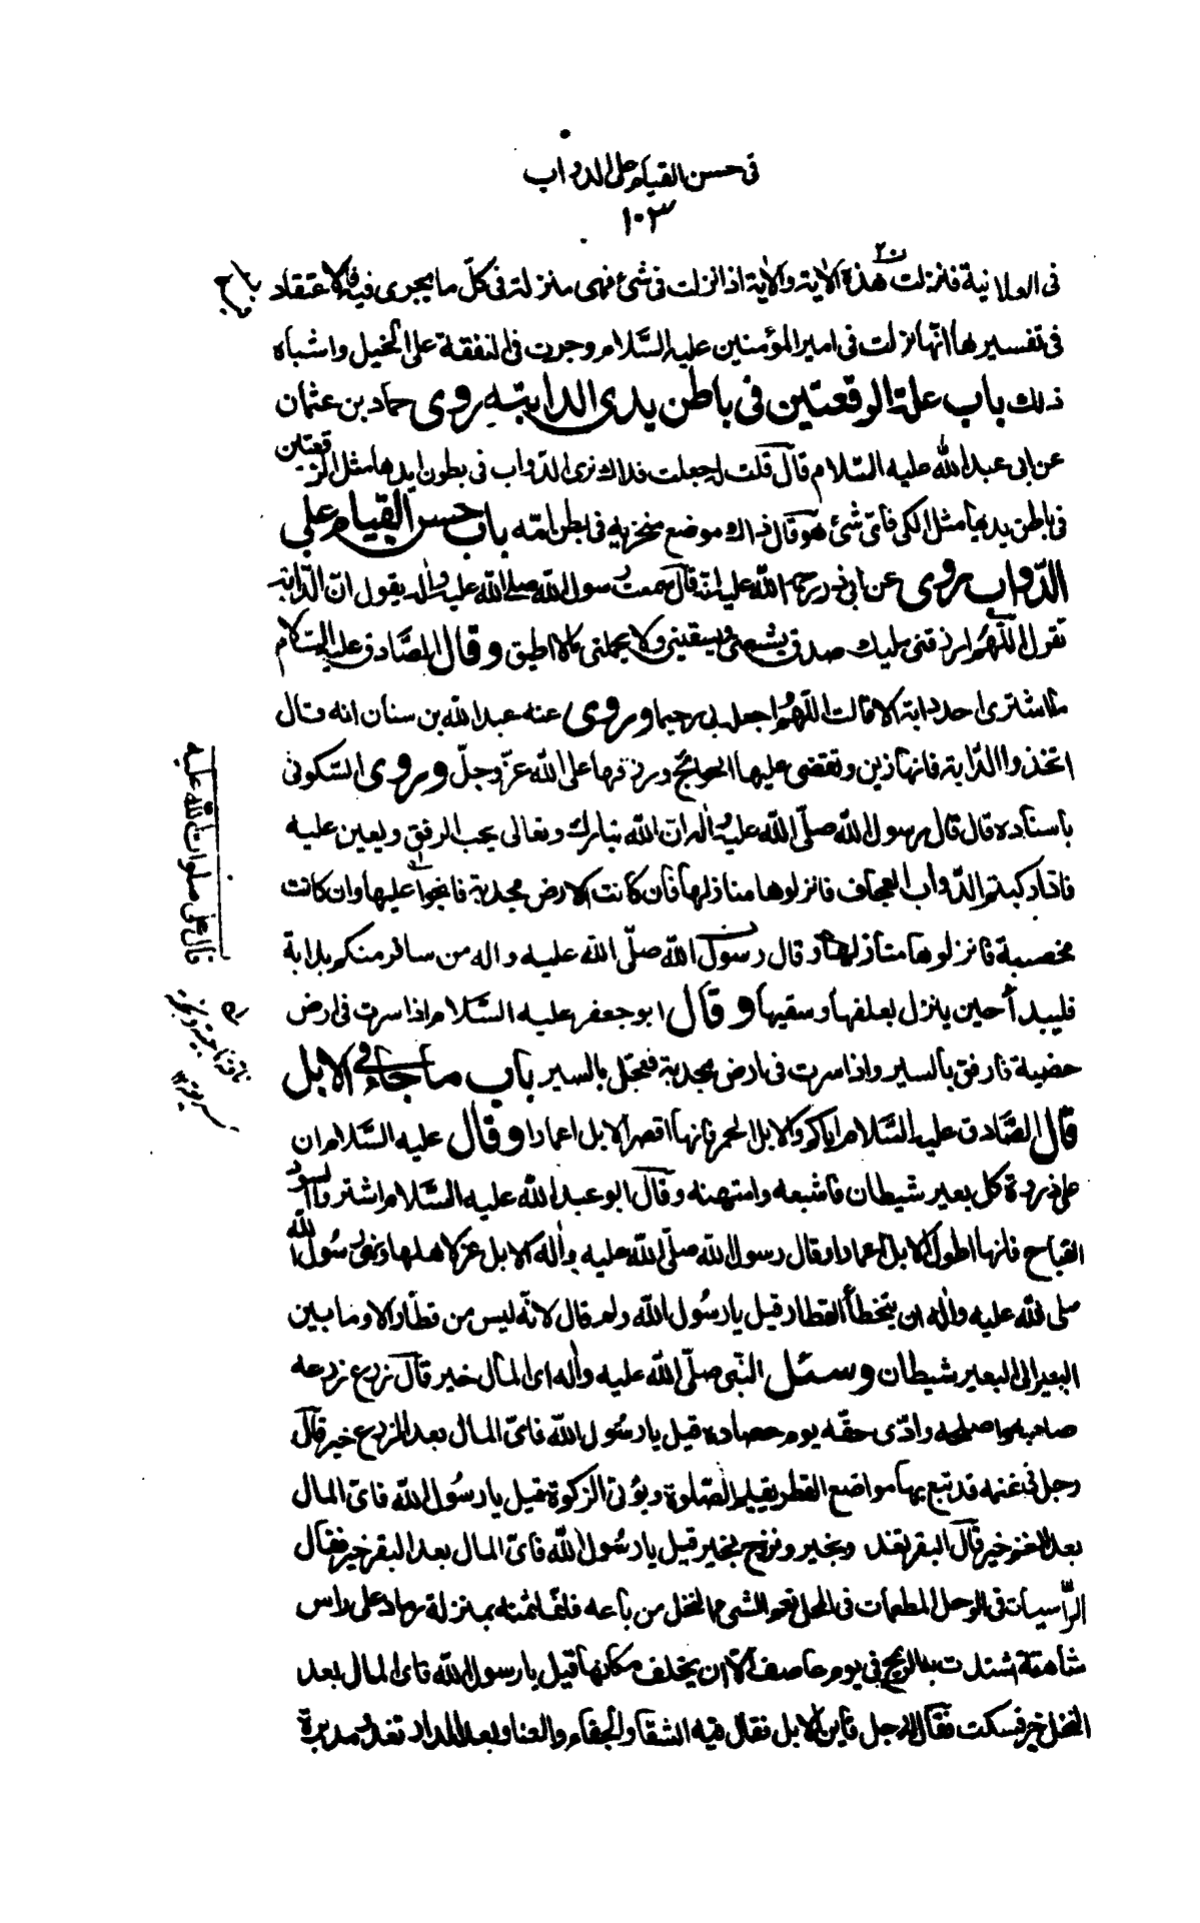 فى حسن القيام على الدواب
١٠٣
فى العلانية فنزلت هذه الاية والاية اذا نزلت فى شئ فهى منزلة فى كلّ ما يجرى فيه فالاعتقاد
فى تفسيرها انّها نزلت فى امير المؤمنين عليه السّلام وجرت فى النفقة على الخيل واشباه
ذلك باب علة الرقعتين فى باطن يدى الدابة روى حماد بن عثمان
عن ابى عبد الله عليه السّلام قال قلت له جعلت فداك نرى الدّواب فى بطون ايديها مثل الرقعتين
فى باطن يديها مثل الكى فاىّ شئ هو قال ذاك موضع منخريه فى بطن امّه باب حسن القيام على
الدّواب روى عن ابى ذر رحمة الله عليه انه قال سمعت رسول الله صلى الله عليه واله يقول انّ الدّابة
تقول اللّهمّ ارزقنى مليك صدق يشبعنى ويسقينى ولا يحملنى ما لا اطيق وقال الصّادق عليه السّلام
ما اشترى احد دابة الا قالت اللّهمّ اجعله بى رحيما وروى عنه عبد الله بن سنان انه قال
اتخذوا الدّابة فانها زين وتقضى عليها الحوائج ورزقها على الله عزّ وجلّ وروى السّكونى
باسناده قال قال رسول الله صلّى الله عليه واله ان الله تبارك وتعالى يحب الرفق ويعين عليه
فاذا ركبتم الدّواب العجاف فانزلوها منازلها فان كانت الارض مجدبة فانجوا عليها وان كانت
مخصبة فانزلوها منازلها وقال رسول الله صلّى الله عليه واله من سافر منكم بدابة
فليبدأ حين ينزل بعلفها وسقيها وقال ابو جعفر عليه السّلام اذا سرت فى ارض
خصبة فارفق بالسير واذا سرت فى ارض مجدبة فعجّل بالسير باب ما جاء فى الابل
قال الصّادق عليه السّلام اياكم والابل الحمر فانها اقصر الابل اعمارا وقال عليه السّلام ان
على ذروة كل بعير شيطان فاشبعه وامتهنه وقال ابو عبد الله عليه السّلام اشتروا السود
القباح فانها اطول الابل اعمارا وقال رسول الله صلّى الله عليه واله الابل عز لاهلها ونهى رسول الله
صلى الله عليه واله ان يتخطأ القطار قيل يا رسول الله ولم قال لانّه ليس من قطار الا وما بين
البعير الى البعير شيطان وسئل النّبى صلّى الله عليه واله اى المال خير قال زرع زرعه
صاحبه واصلحه وادّى حقّه يوم حصاده قيل يا رسول الله فاىّ المال بعد الزرع خير قال
رجل فى غنمه قد تبع بها مواضع القطر يقيم الصّلوة ويؤتى الزكوة قيل يا رسول الله فاىّ المال
بعد الغنم خير قال البقر تغدو بخير وتروح بخير قيل يا رسول الله فاىّ المال بعد البقر خير فقال
الرّاسيات فى الوحل المطعمات فى المحل نعم الشى النخل من باعه فانما ثمنه بمنزلة رماد على راس
شاهقة اشتدت به الريح فى يوم عاصف الّا ان يخلف مكانها قيل يا رسول الله فاى المال بعد
النخل خير فسكت فقال له رجل فاين الابل فقال فيه الشقا والجفاء والعنا وبعد الدار تغدو مدبرة
قال على صلوات الله عليه